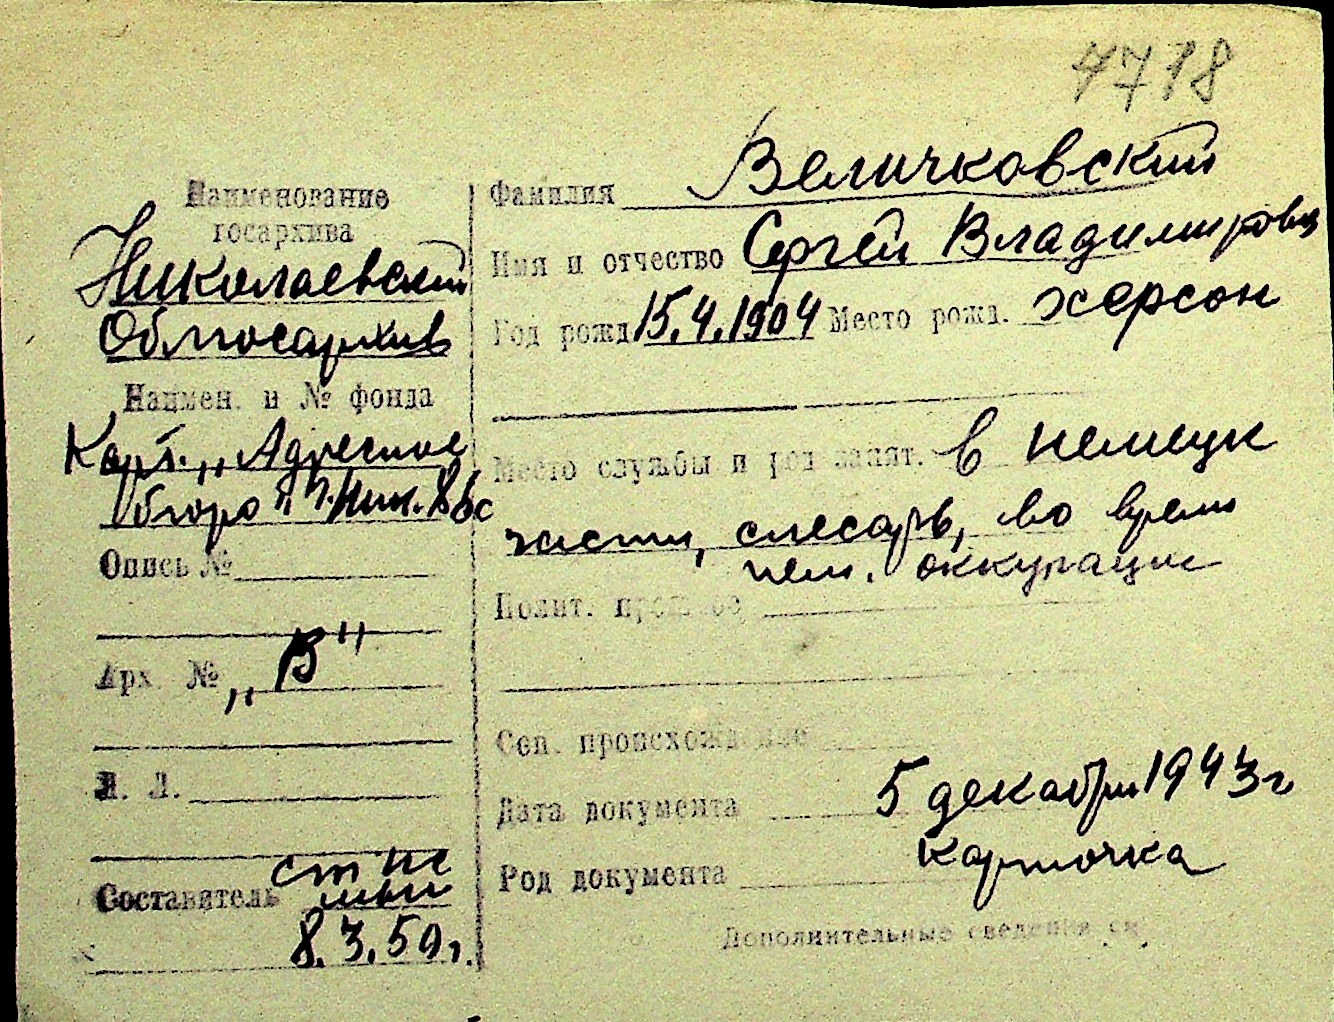 4718
Наименование
госархива
Николаевский
Облгосархив
Наимен. и № фонда
Карт. „Адресное
бюро"
Опись №
Арх №
„В"
Л. Л.
Составитель
8.3.50г.
Фамилия Величковский
Имя и отчество Сергей Владимирович
Год рожд 15.4.1904 Место рожд. Херсон
Место службы и род занят. в немецк
части, слесарь, во время
нем. оккупации
Полит. прошлое
Соц. происхождение
Дата документа 5 декабря 1943 г
Род документа карточка
Дополнительные сведения